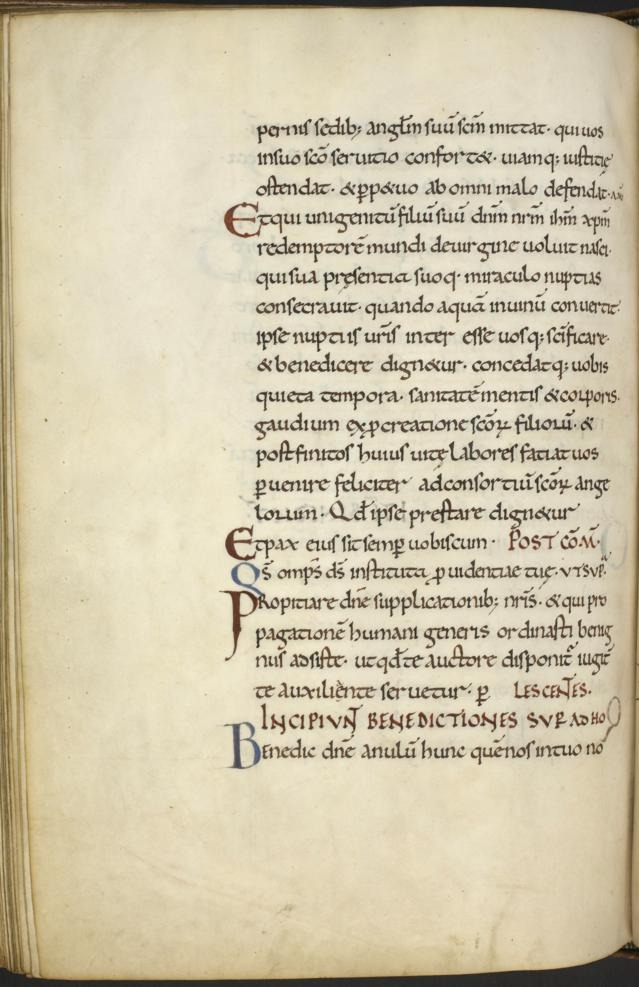 pernis sedib; angłm suū scm̄ mittat · qui uos
in suo sc̄o seruitio confort& · uiamq; iustitię
ostendat · & ꝑp&uo ab omni malo defendat ·
Et qui unigenitū filiū suū dnm̄ nrm̄ ihm̄ xpm̄
redemptorē mundi de uirgine uoluit nasci ·
qui sua pręsentia suoq · miraculo nuptias
consecrauit · quando aquā in uinū conuertit ·
ipse nuptiis ur̄is inter esse uosq; scīficare ·
& benedicere dign&ur · concedatq; uobis
quieta tempora · sanitatē mentis & corporis ·
gaudium ex ꝓcreatione sc̄oꝝ filiorū · &
post finitos huius uitę labores faciat uos
ꝑuenire feliciter ad consortiū sc̄oꝝ ange
lorum · Qd̄ ipse prestare dign&ur
Et pax eius sit semꝑ uobiscum · POST CŌM̄ ·
Qs̄ omps̄ ds̄ instituta ꝓuidentiae tuę · UT SUP̄ ·
PRopitiare dn̄e supplicationib; nr̄is · & qui pro
pagationē humani generis ordinasti benig
nus adsiste · ut qđ te auctore disponit̄ iugit̄
te auxiliente seruetur · ꝑ LESCEN̄ES ·
INCIPIUN̄T BENEDICTIONES SUP̄ ADHO
Benedic dn̄e anulū hunc quē nos in tuo no